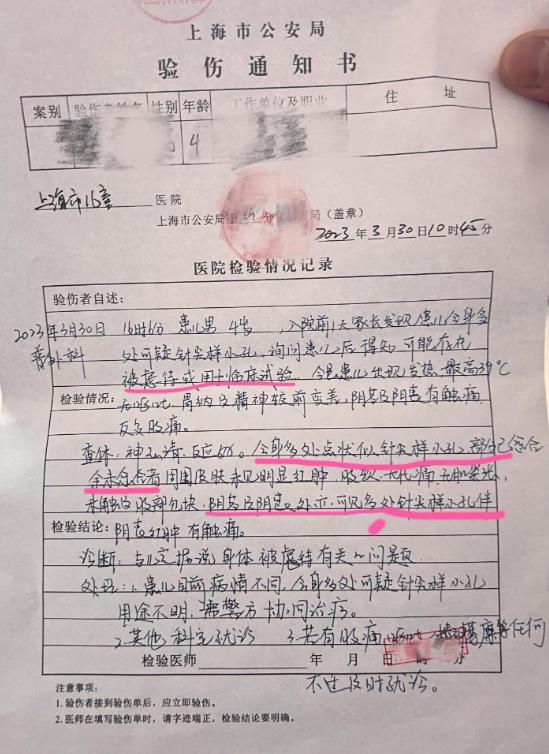 上海市公安局
验伤通知书
案别 验伤者姓名 性别 年龄 工作单位及职业 住 址
4
上海市儿童 医院
上海市公安局 分局（盖章）
2023年3月30日10时45分
医院检验情况记录
验伤者自述：
2023年3月30日 16时6分 患儿男 4岁 ，入院前1天家长发现患儿全身多
普外科 处可疑针尖样小孔，询问患儿后得知可能存在
被虐待或用于临床试验。今患儿出现发热，最高39℃
检验情况：
无呕吐，胃纳及精神较前变差，阴茎及阴囊有触痛
反复腹痛。
查体：神志清，反应好。全身多处点状似针尖样小孔，部分已愈合
余未愈合者周围皮肤未见明显红肿，腹软，无
未触及 包块，阴茎及阴囊处亦可见多处针尖样小孔伴
检验结论：
阴囊红肿有触痛。
诊断：与 据说身体被虐待有关的问题
处理：1.患儿目前病情不同，全身多处可疑针尖样小孔
用途不明，需警方协同治疗。
2.其他科室就诊 3.若有腹痛 呕吐 等任何
检验医师 年 月 日 时 分
不适及时就诊。
注意事项：
1. 验伤者接到验伤单后，应立即验伤。
2. 医师在填写验伤单时，请字迹端正，检验结论要明确。